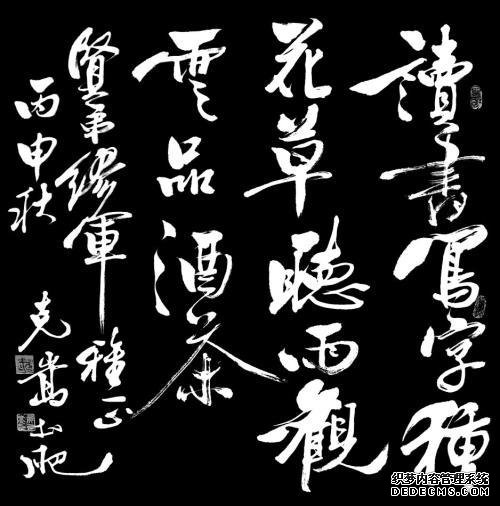 讀書寫字種
花草聽雨觀
雲品酒茶
賢弟繆軍雅正
丙申秋
克嵩
织梦内容管理系统
DEDECMS.COM